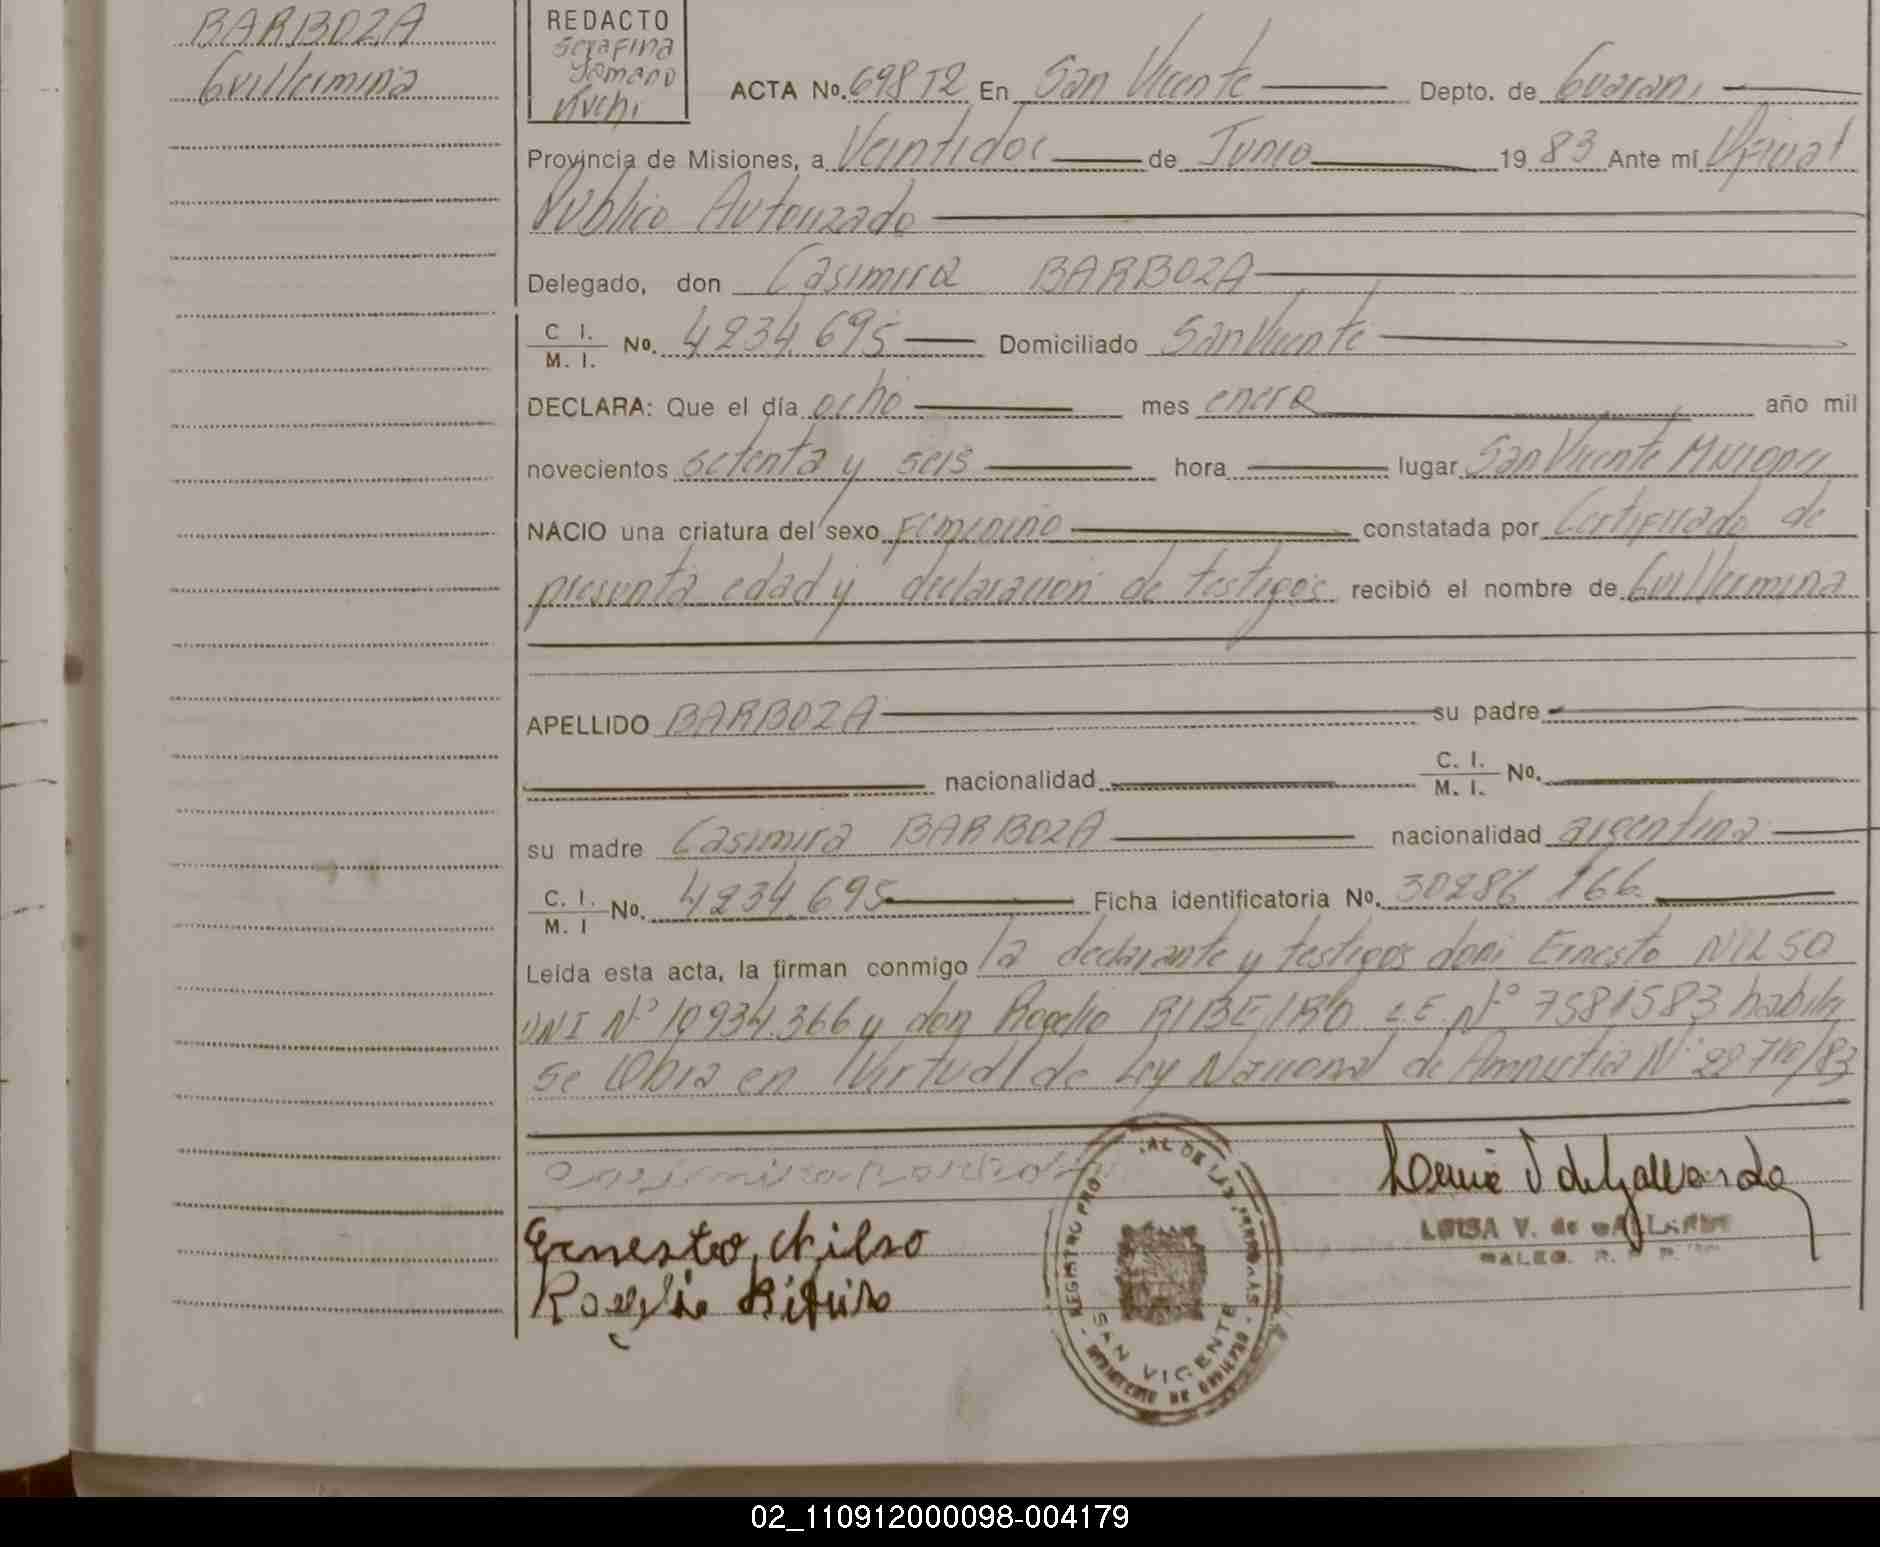 BARBOZA
Guillermina
REDACTO
Serafina
Kuchi
ACTA No. 698 T2 En San Vicente Depto. de Guarani
Provincia de Misiones, a Veintidos de Junio 19 83 Ante mí Oficial
Público Autorizado
Delegado, don Casimira BARBOZA
C I.
M. I. No. 4234.695 Domiciliado San Vicente
DECLARA: Que el día ocho mes enero año mil
novecientos setenta y seis hora lugar San Vicente Misiones
NACIO una criatura del sexo Femenino constatada por Certificado de
presunta edad y declaración de testigos recibió el nombre de Guillermina
APELLIDO BARBOZA su padre
nacionalidad C. I.
M. I. No.
su madre Casimira BARBOZA nacionalidad argentina
C. I.
M. I No. 4234.695 Ficha identificatoria No. 30286 166
Leida esta acta, la firman conmigo la declarante y testigos don: Ernesto NILSO
DNI Nº 10934.366 y don Rogelio RIBEIRO L.E. Nº 7581583 habile
se Obra en Virtud de Ley Nacional de Amnistia Nº 22710/83
Casimira Barboza
Ernesto Nilso
Rogelio Ribeiro
LUISA V. de GALLARDO
REGISTRO PRO AL DE LAS PERSONAS
SAN VICENTE
02_110912000098-004179